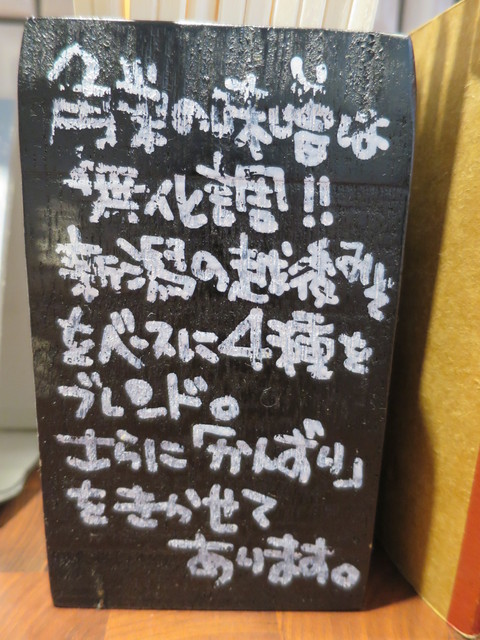 角栄の味噌は
無化調!!
新潟の越後みそ
をベースに4種を
ブレンド。
さらに「かんずり」
をきかせて
あります。